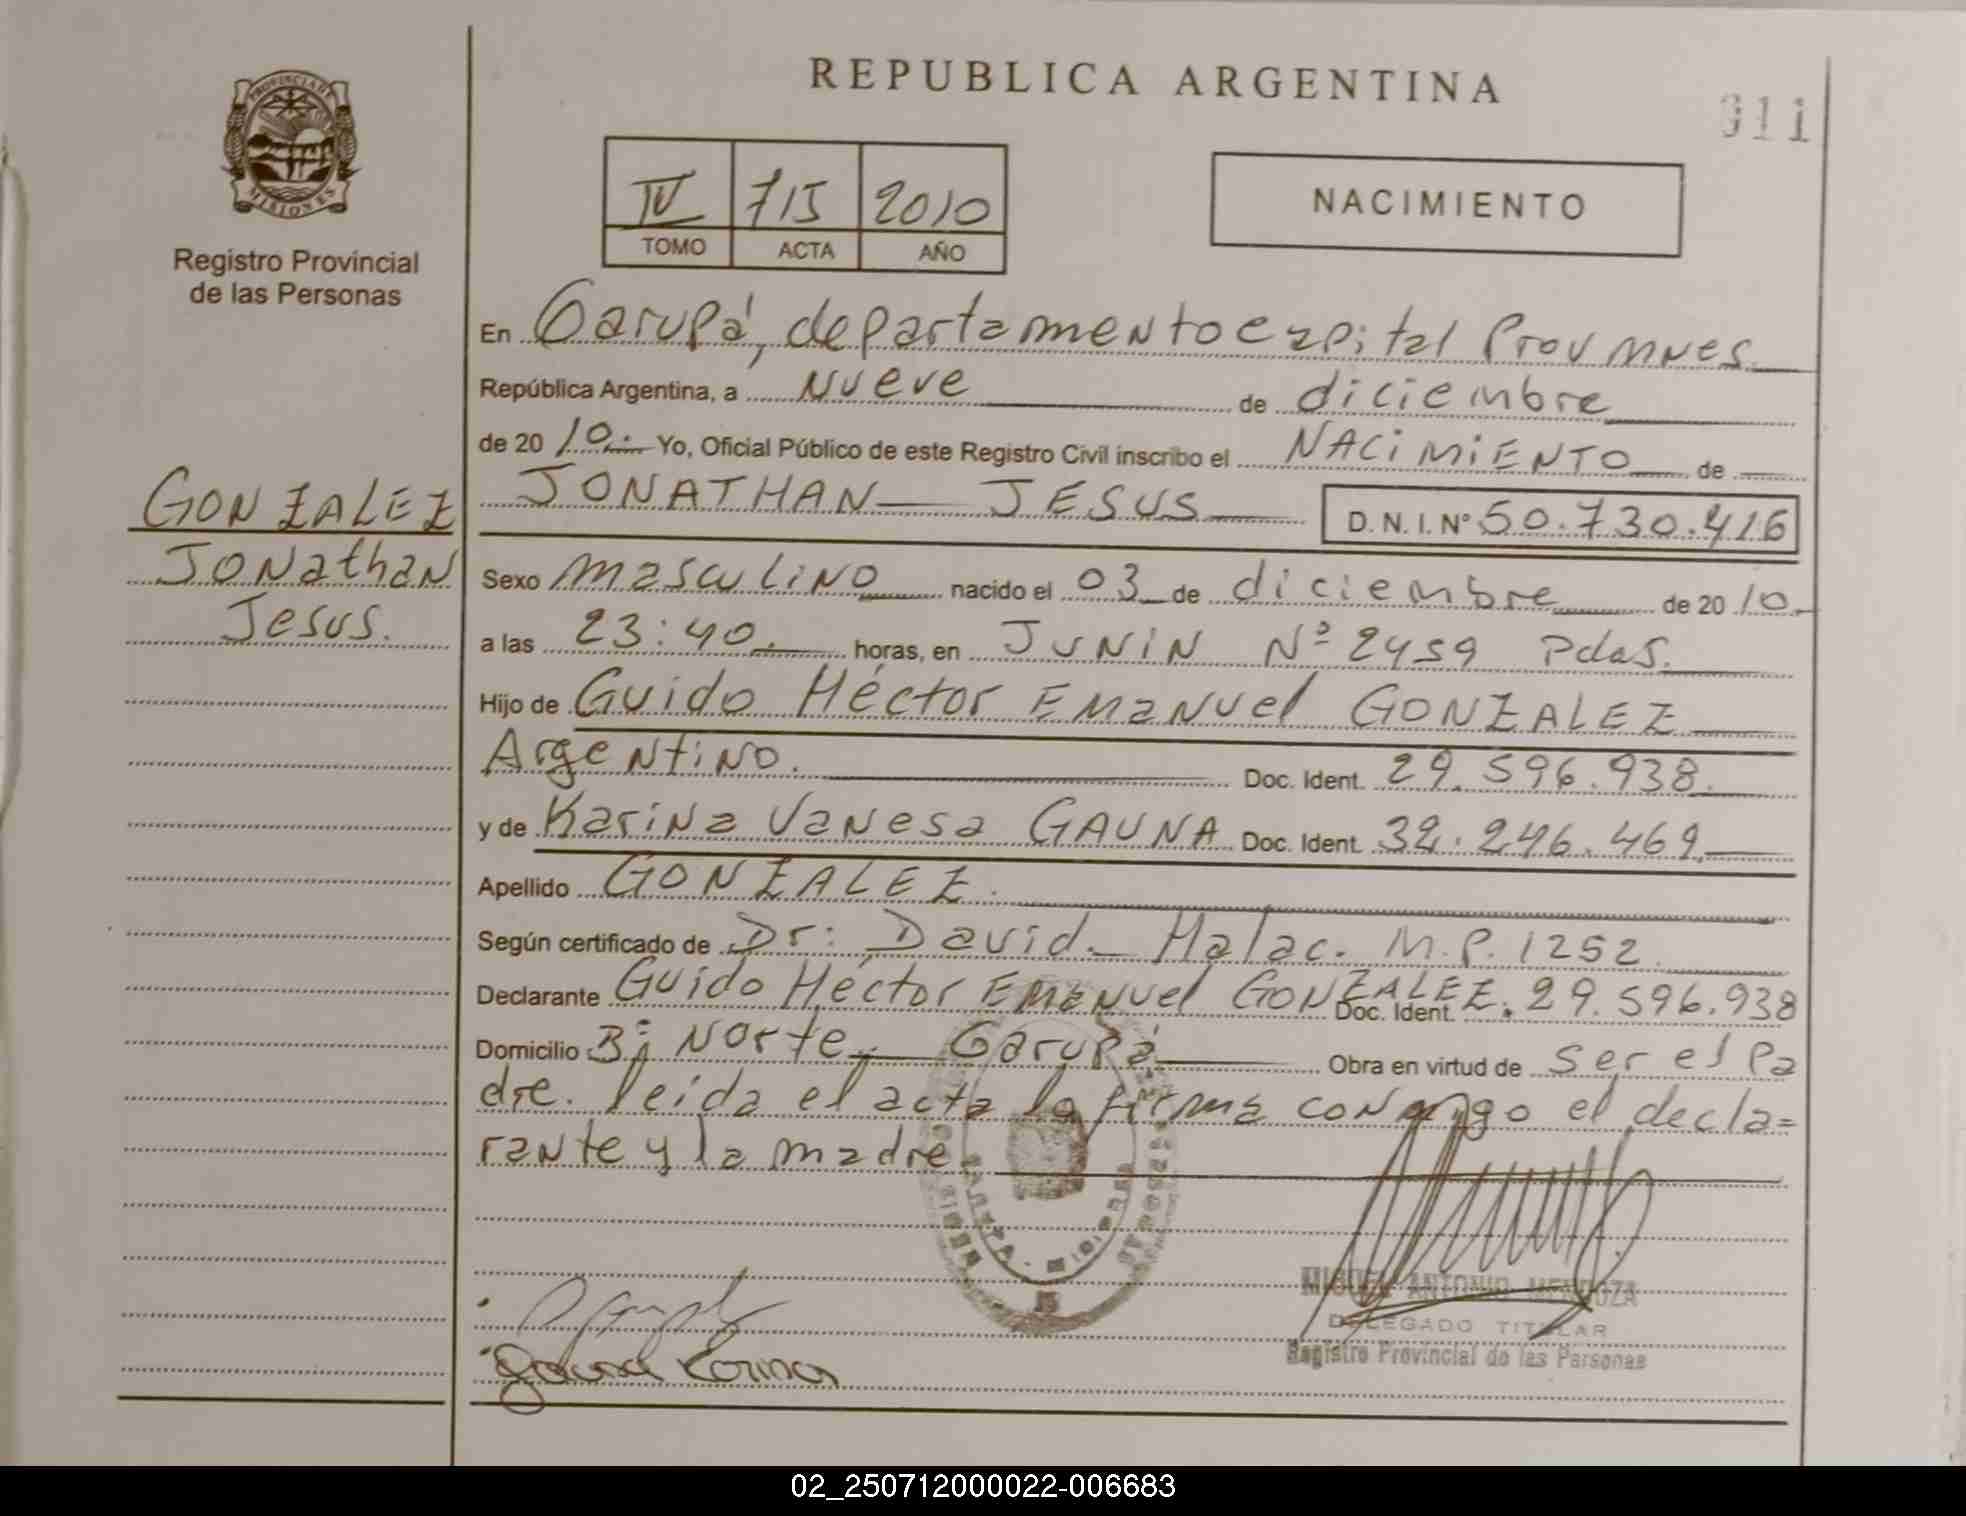 REPUBLICA ARGENTINA
911
PROVINCIA DE
MISIONES
Registro Provincial
de las Personas
IV 715 2010
TOMO ACTA AÑO
NACIMIENTO
En Garupá, departamento capital Prov mnes
República Argentina, a nueve de diciembre
de 20 10.- Yo, Oficial Público de este Registro Civil inscribo el NACIMIENTO de
JONATHAN JESUS D. N. I. Nº 50.730.416
GONZALEZ
Jonathan
Jesus.
Sexo masculino nacido el 03 de diciembre de 20 10.-
a las 23:40. horas, en JUNIN Nº 2459 Pdas.
Hijo de Guido Héctor Emanuel GONZALEZ
Argentino. Doc. Ident. 29.596.938.
y de Karina Vanesa GAUNA Doc. Ident. 32.246.469
Apellido GONZALEZ.
Según certificado de Dr: David Halac. M.P. 1252
Declarante Guido Héctor Emanuel GONZALEZ. Doc. Ident. 29.596.938
Domicilio Bº Norte, Garupá Obra en virtud de ser el pa
dre. leida el acta la firma conmigo el decla=
rante y la madre
MIGUEL ANTONIO MENDOZA
DELEGADO TITULAR
Registro Provincial de las Personas
Gauna Karina
02_250712000022-006683